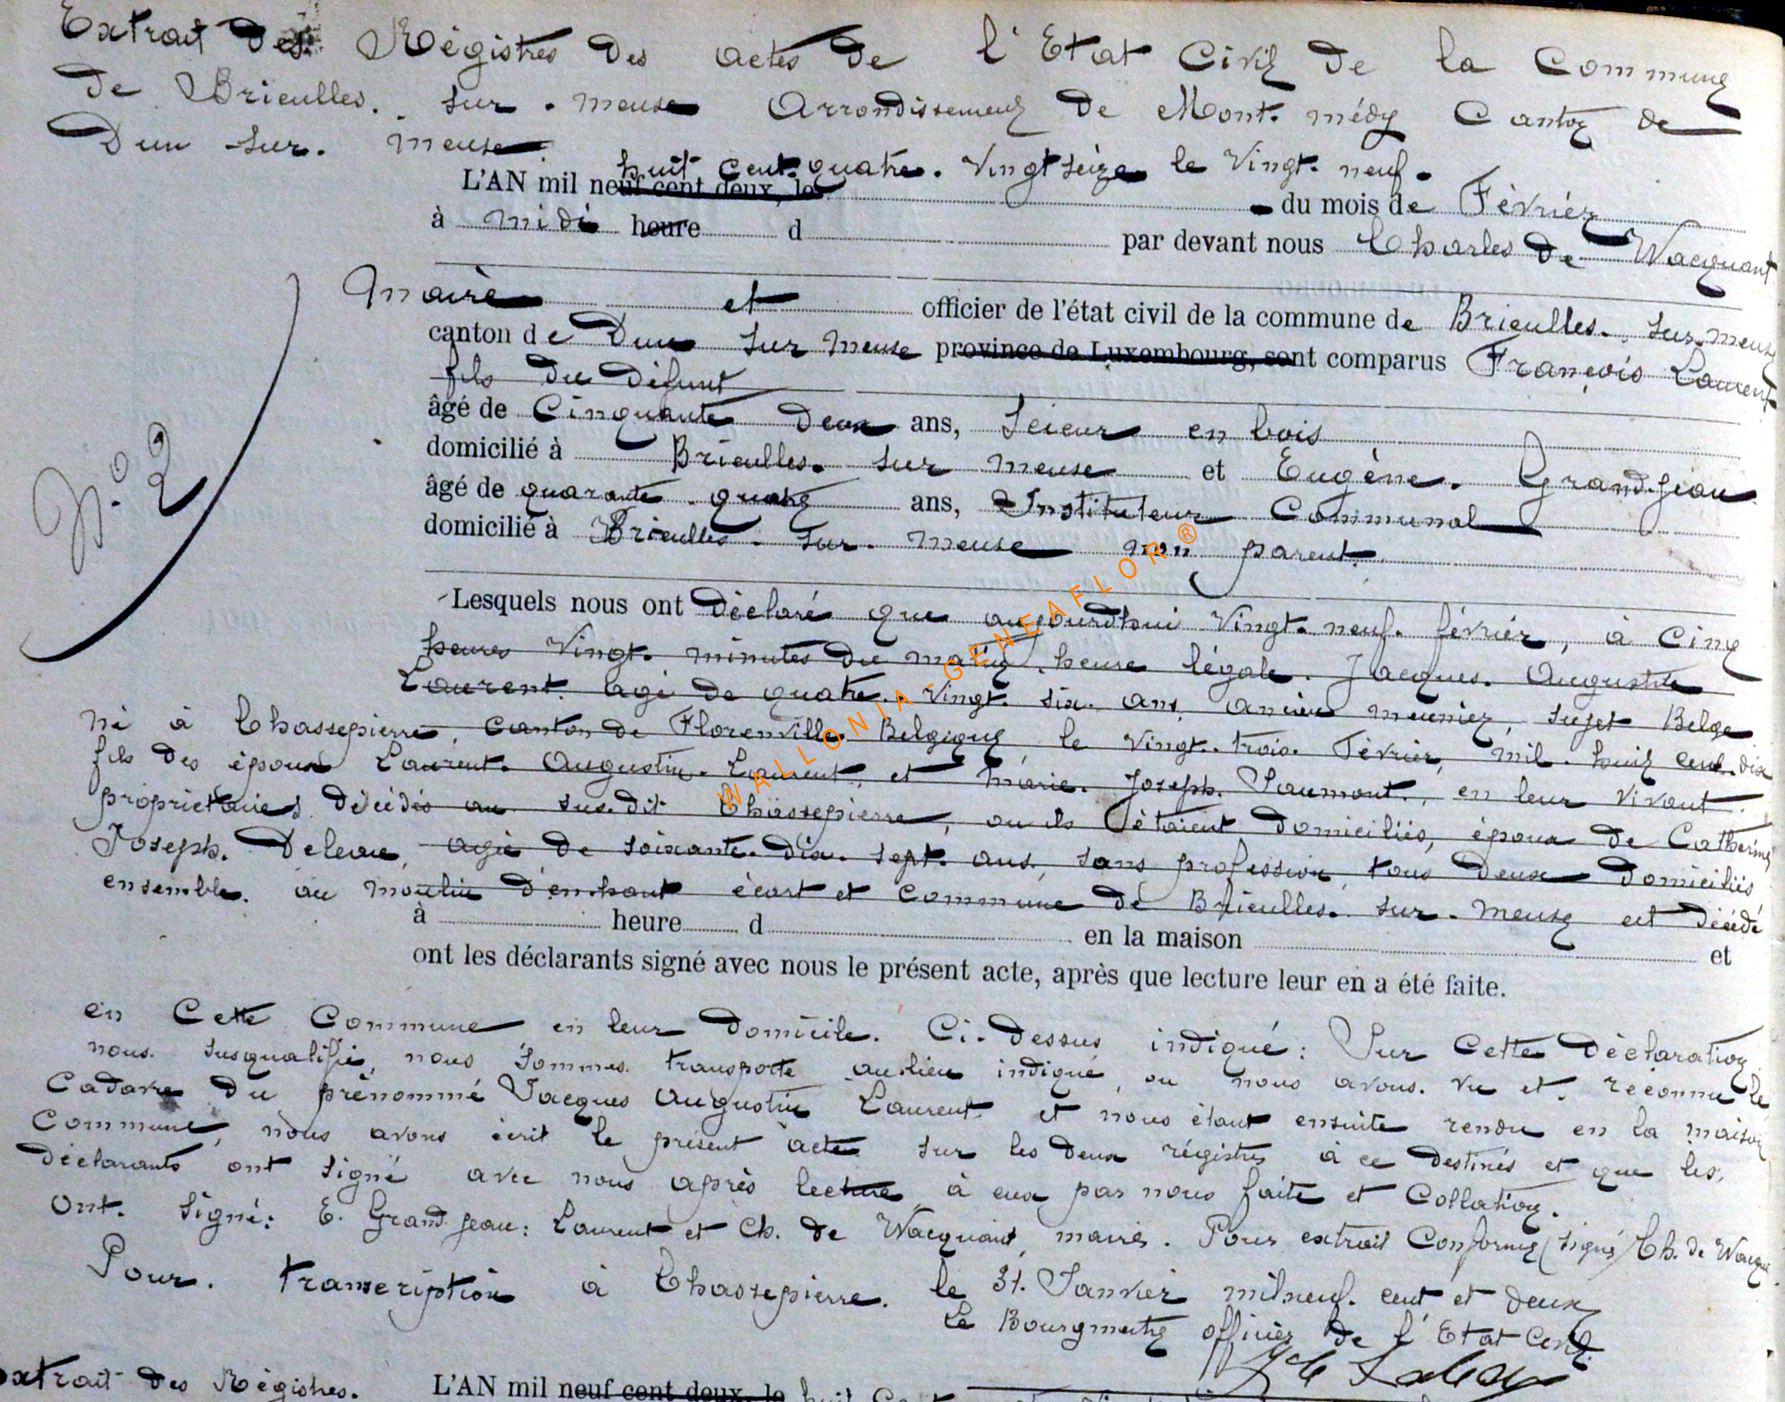 Extrait des Régistres des actes de l'Etat Civil de la Commune
de Brieulles. sur. meuse Arrondissement de Mont. médy Canton de
Dun sur. meuse.
huit cent. quatre. Vingt seize le Vingt. neuf.
L'AN mil neuf cent deux, le du mois de Février
à midi heure d par devant nous Charles de Wacquant
Maire et officier de l'état civil de la commune de Brieulles. sur. meuse
canton de Dun sur meuse province de Luxembourg, sont comparus François Laurent
fils du défunt
âgé de Cinquante deux ans, scieur en bois
domicilié à Brieulles. sur meuse et Eugène. Grandjean
âgé de quarante. quatre ans, Instituteur Communal
domicilié à Brieulles. sur. meuse non parent.
N.° 2
Lesquels nous ont déclaré que aujourd'hui Vingt. neuf. février, à Cinq
heures Vingt. minutes du matin. heure légale. Jacques. Augustin
Laurent. agé de quatre. Vingt. six. ans, ancien meunier, sujet Belge
né à Chassepierre, canton de Florenville. Belgique, le Vingt. trois. Février, mil. huit cent. dix
fils des époux Laurent. Augustin. Laurent, et Marie. Joseph. Saumont., en leur vivant
propriétaires décédés au sus. dit Chassepierre, ou ils étaient domiciliés, époux de Catherine
Joseph. Deleau, agée de soixante. dix. sept. ans, sans profession, tous deux domiciliés
ensemble. au moulin d'enhaut écart et commune de Brieulles. sur. Meuse est décédé
à heure d en la maison et
ont les déclarants signé avec nous le présent acte, après que lecture leur en a été faite.
en Cette Commune en leur domicile. Ci. dessus indiqué: Sur Cette déclaration
nous. susqualifié, nous sommes. transporté au lieu indiqué, ou nous avons. vu et. reconnu le
Cadavre du prénommé Jacques Augustin Laurent. et nous étant ensuite rendu en la maison
Commune, nous avons écrit le présent acte sur les deux régistres à ce destinés et que les.
déclarants ont signé avec nous après lecture à eux par nous faite et Collation.
Ont. Signé: E. Grand jean: Laurent et Ch. de Wacquant, maire. Pour extrait Conforme (signé) Ch. de Wacqu
Pour. transcription à Chassepierre. le 31. Janvier mil neuf. cent et deux
Le Bourgmestre officier de l'Etat Civil.
Extrait des Régistres. L'AN mil neuf cent deux, le huit
WALLONIA-GENEAFLOR®